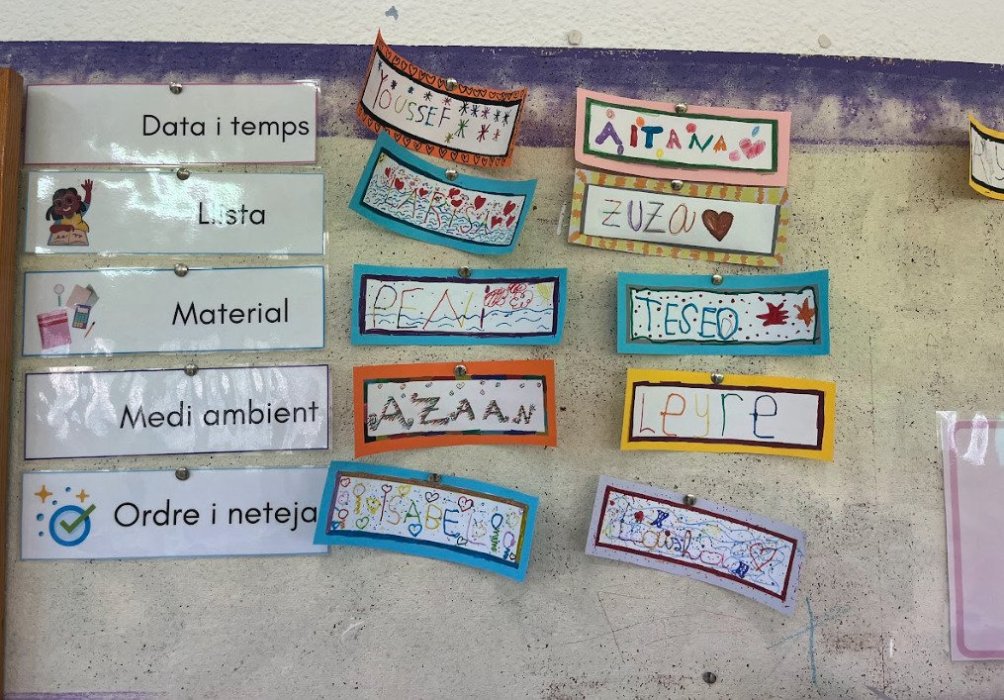 Data i temps
YOUSSEF
AITANA
Llista
LARISA
ZUZA
Material
PEALI
TESEO
Medi ambient
AZAAN
Leyre
Ordre i neteja
ISABEL